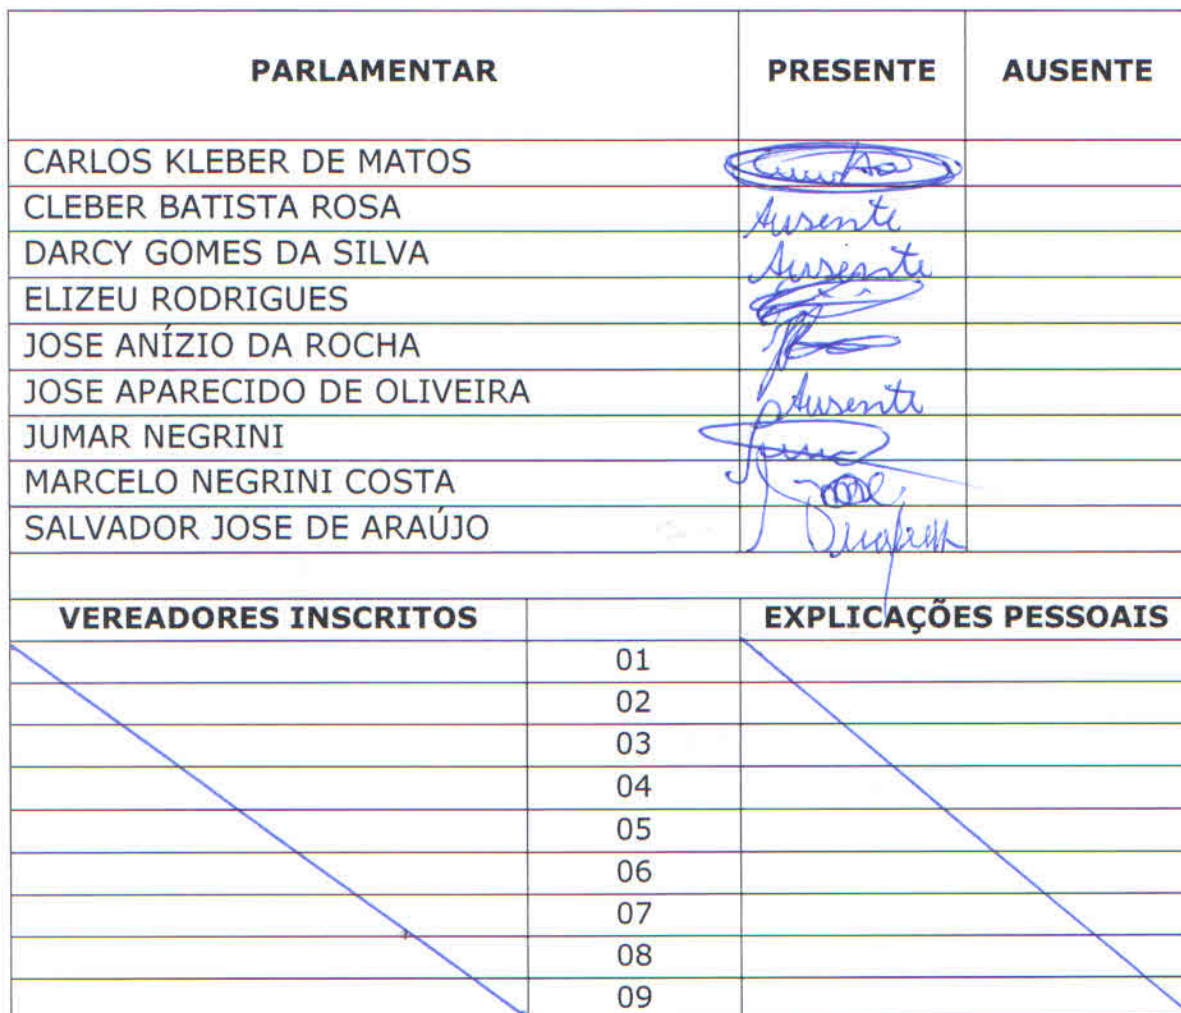 PARLAMENTAR PRESENTE AUSENTE
CARLOS KLEBER DE MATOS
CLEBER BATISTA ROSA Ausente
DARCY GOMES DA SILVA Ausente
ELIZEU RODRIGUES
JOSE ANÍZIO DA ROCHA
JOSE APARECIDO DE OLIVEIRA Ausente
JUMAR NEGRINI
MARCELO NEGRINI COSTA
SALVADOR JOSE DE ARAÚJO
VEREADORES INSCRITOS EXPLICAÇÕES PESSOAIS
01
02
03
04
05
06
07
08
09